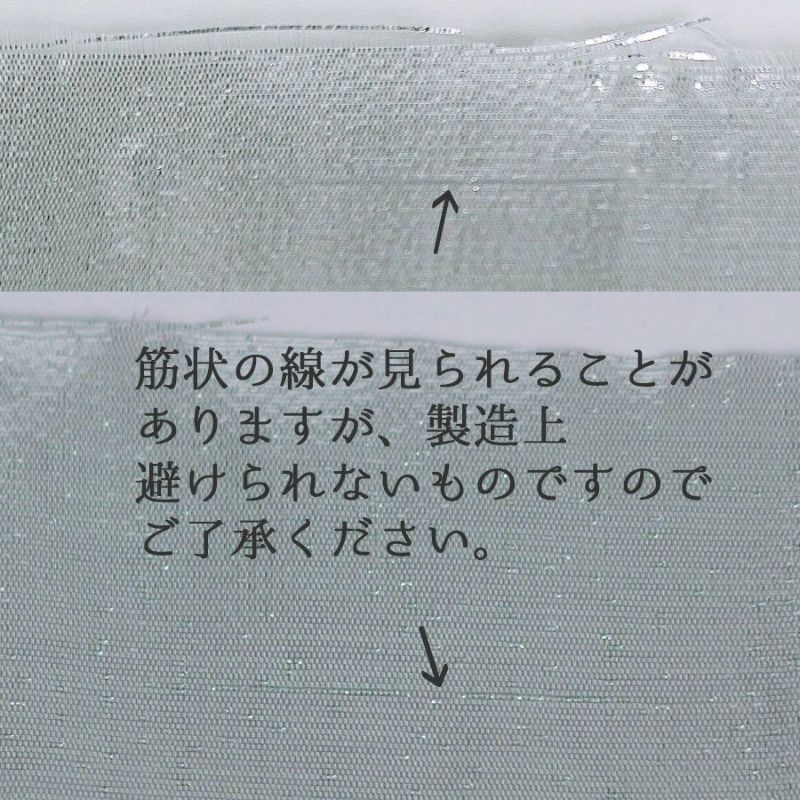 筋状の線が見られることが
ありますが、製造上
避けられないものですので
ご了承ください。